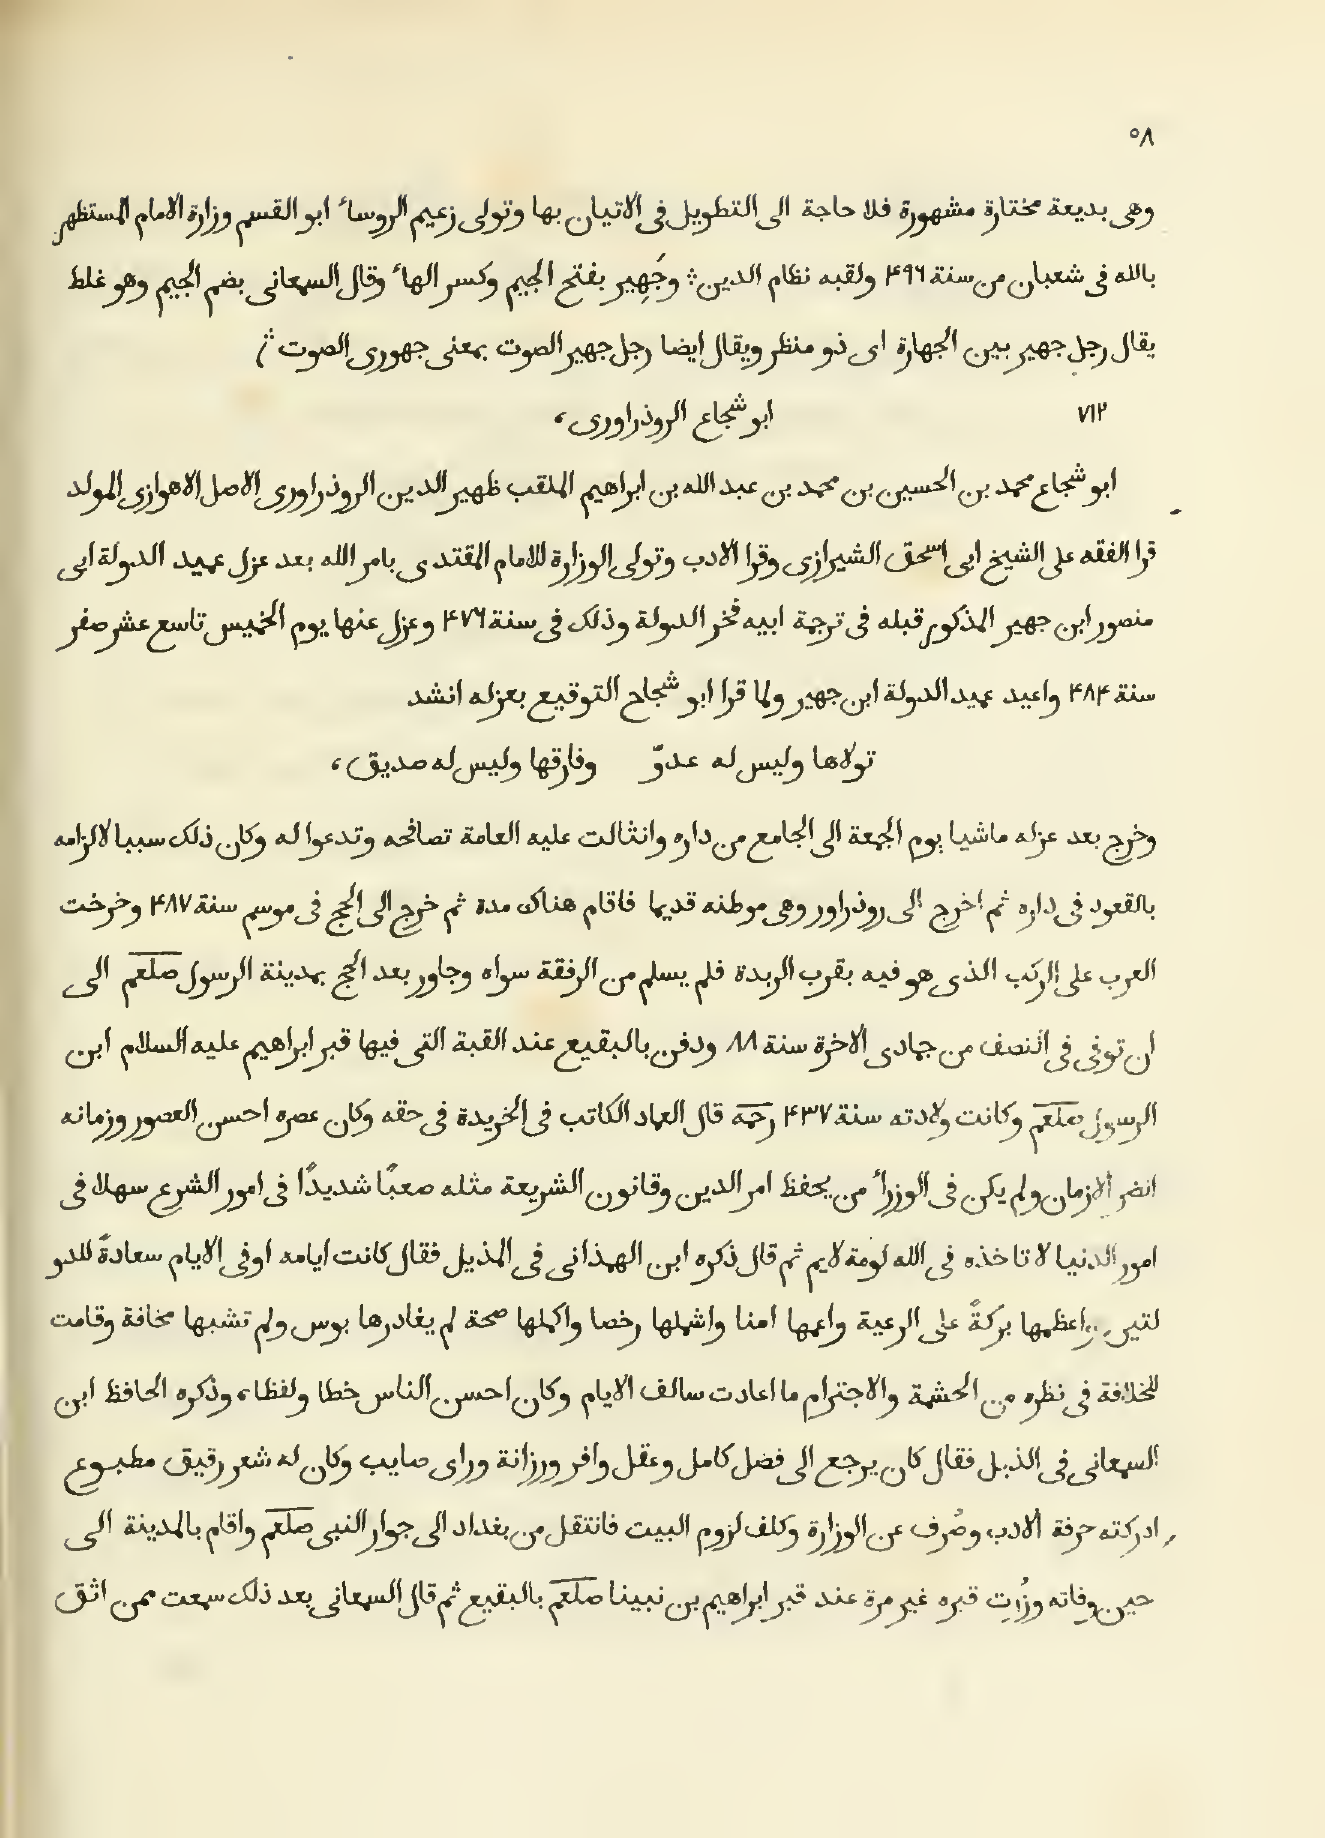 ٥٨
وهى بديعة مختارة مشهورة فلا حاجة الى التطويل فى الاتيان بها وتولى زعيم الروساء ابو القسم وزارة الامام المستظهر
بالله فى شعبان من سنة ۴۹۶ ولقبه نظام الدين ؞ وجَهِير بفتح الجيم وكسر الهاء وقال السمعانى بضم الجيم وهو غلط
يقال رجل جهير بين الجهارة اى ذو منظر ويقال ايضا رجل جهير الصوت بمعنى جهورى الصوت ؞
۷۱۲
ابو شجاع الروذراورى ،
ابو شجاع محمد بن الحسين بن محمد بن عبد الله بن ابراهيم الملقب ظهير الدين الروذراورى الاصل الاهوازى المولد
قرا الفقه على الشيخ ابى اسحق الشيرازى وقرا الادب وتولى الوزارة للامام المقتدى بامر الله بعد عزل عميد الدولة ابى
منصور ابن جهير المذكور قبله فى ترجمة ابيه فخر الدولة وذلك فى سنة ۴۷۶ وعزل عنها يوم الخميس تاسع عشر صفر
سنة ۴۸۴ واعيد عميد الدولة ابن جهير ولما قرا ابو شجاح التوقيع بعزله انشد
تولاها وليس له عدوّ وفارقها وليس له صديق ،
وخرج بعد عزله ماشيا يوم الجمعة الى الجامع من داره وانثالت عليه العامة تصافحه وتدعوا له وكان ذلك سببا لالزامه
بالقعود فى داره ثم اخرج الى روذراور وهى موطنه قديما فاقام هناك مدة ثم خرج الى الحج فى موسم سنة ۴۸۷ وخرخت
العرب على الركب الذى هو فيه بقرب الربدة فلم يسلم من الرفقة سواه وجاور بعد الحج بمدينة الرسول صلعم الى
ان توفى فى النصف من جمادى الاخرة سنة ۸۸ ودفن بالبقيع عند القبة التى فيها قبر ابراهيم عليه السلام ابن
الرسول صلعم وكانت ولادته سنة ۴۳۷ رحمه قال العماد الكاتب فى الخريدة فى حقه وكان عصره احسن العصور وزمانه
انضر الازمان ولم يكن فى الوزراء من يحفظ امر الدين وقانون الشريعة مثله صعبًا شديدًا فى امور الشرع سهلا فى
امور الدنيا لا تاخذه فى الله لومة لايم ثم قال ذكره ابن الهمذانى فى المذيل فقال كانت ايامه اوفى الايام سعادةً للدو
لتين واعظمها بركةً على الرعية واعمها امنا واشملها رخصا واكملها صحة لم يغادرها بوس ولم تشبها مخافة وقامت
للخلافة فى نظره من الحشمة والاجترام ما اعادت سالف الايام وكان احسن الناس خطا ولفظا ، وذكره الحافظ ابن
السمعانى فى الذيل فقال كان يرجع الى فضل كامل وعقل وافر ورزانة وراى صايب وكان له شعر رقيق مطبوع
ادركته حرفة الادب وصُرف عن الوزارة وكلف لزوم البيت فانتقل من بغداد الى جوار النبى صلعم واقام بالمدينة الى
حين وفاته وزُرت قبره غير مرة عند قبر ابراهيم بن نبينا صلعم بالبقيع ثم قال السمعانى بعد ذلك سمعت ممن اثق